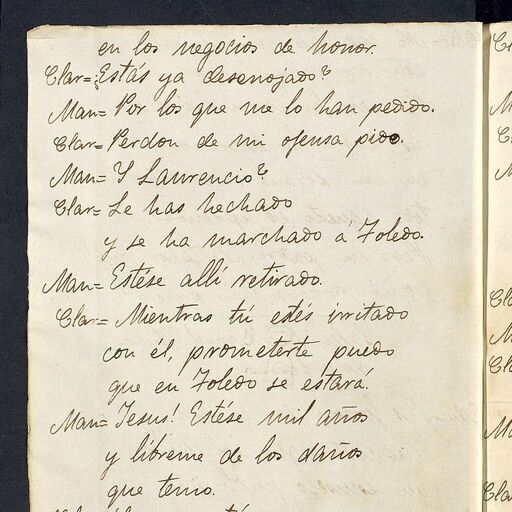 en los negocios de honor.
Clar= Estás ya desenojado?
Man= Por los que me lo han pedido.
Clar= Perdon de mi ofensa pido.
Man= Y Laurencio?
Clar= Le has hechado
y se ha marchado á Toledo.
Man= Estése allí retirado.
Clar= Mientras tú estés irritado
con él, prometerte puedo
que en Toledo se estará.
Man= Jesus! Estése mil años
y libreme de los daños
que temo.